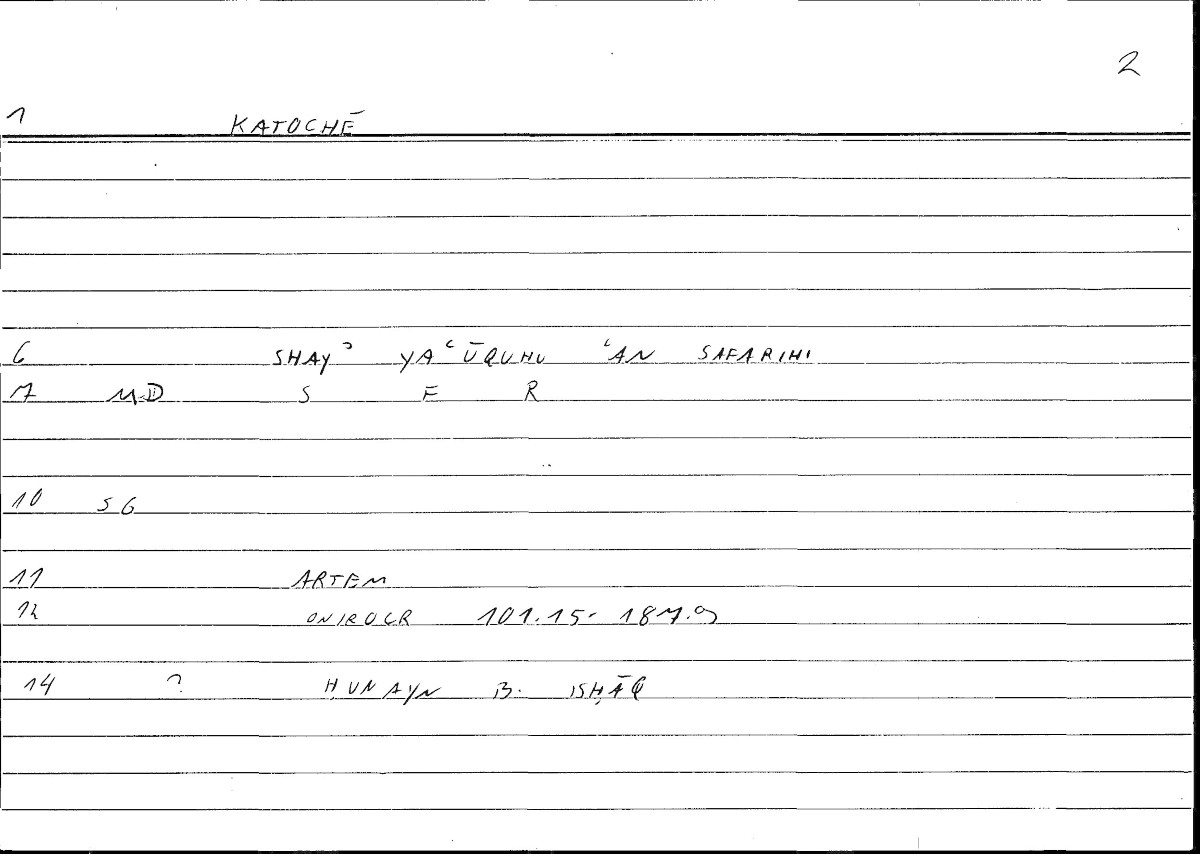 2
1 KATOCHĒ
6 SHAYʾ YAʿŪQUHU ʿAN SAFARIHI
7 MD S F R
10 SG
11 ARTEM
12 ONIROCR 101.15- 187.9
14 ? ḤUNAYN B. ISḤĀQ